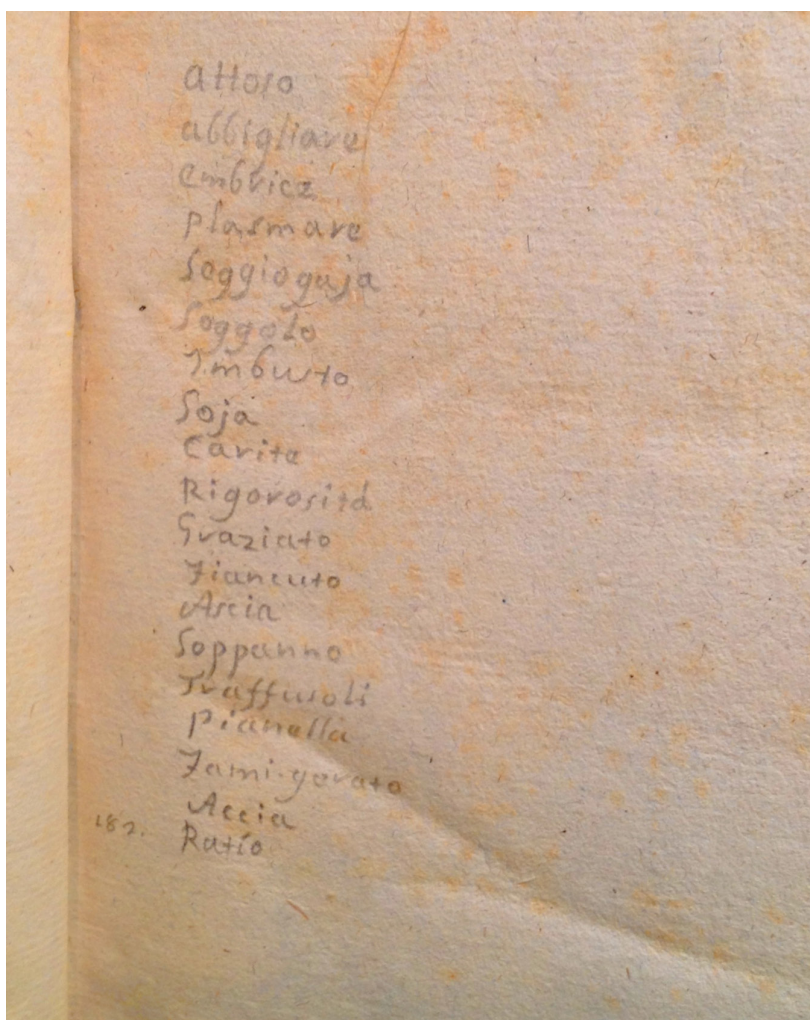 attoso
abbigliare
embrice
plasmare
Seggiogaja
Soggolo
Imbusto
Soja
Carite
Rigorosità
Graziato
Fiancuto
Ascia
Soppanno
Traffusoli
pianella
Fami-gerato
Accia
182. Ratio